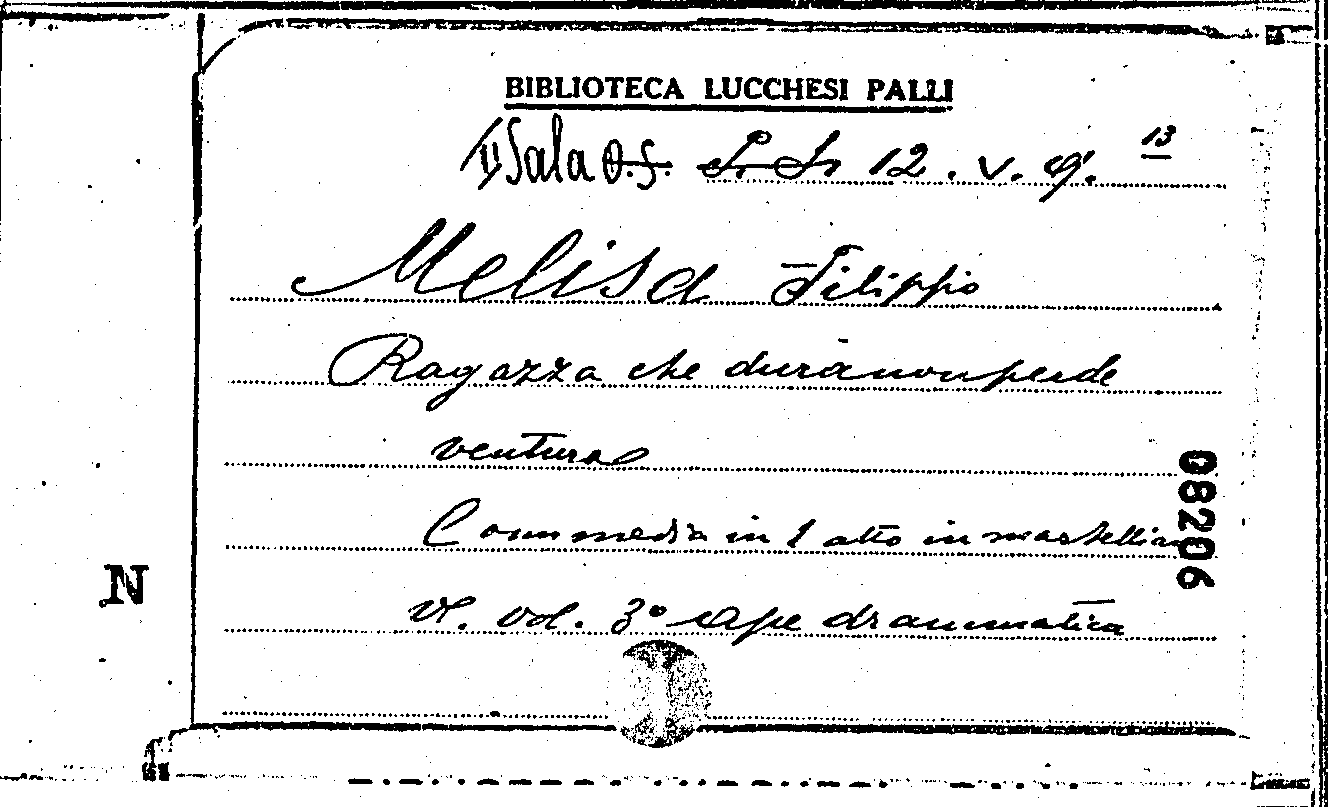 BIBLIOTECA LUCCHESI PALLI
II Sala 12. v. 9. 13
Melisa Filippo
Ragazza che dura non perde
ventura
Commedia in 1 atto in martelliani
vl. vol. 3° Ape drammatica
08206
N